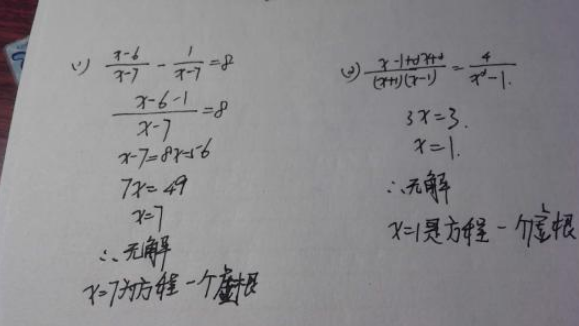 (1) x-6/x-7 - 1/x-7 = 8
x-6-1/x-7 = 8
x-7=8x-56
7x=49
x=7
∴无解
x=7为方程一个虚根
(2) x-1+2x+2/(x+1)(x-1) = 4/x²-1.
3x=3.
x=1.
∴无解
x=1是方程一个虚根